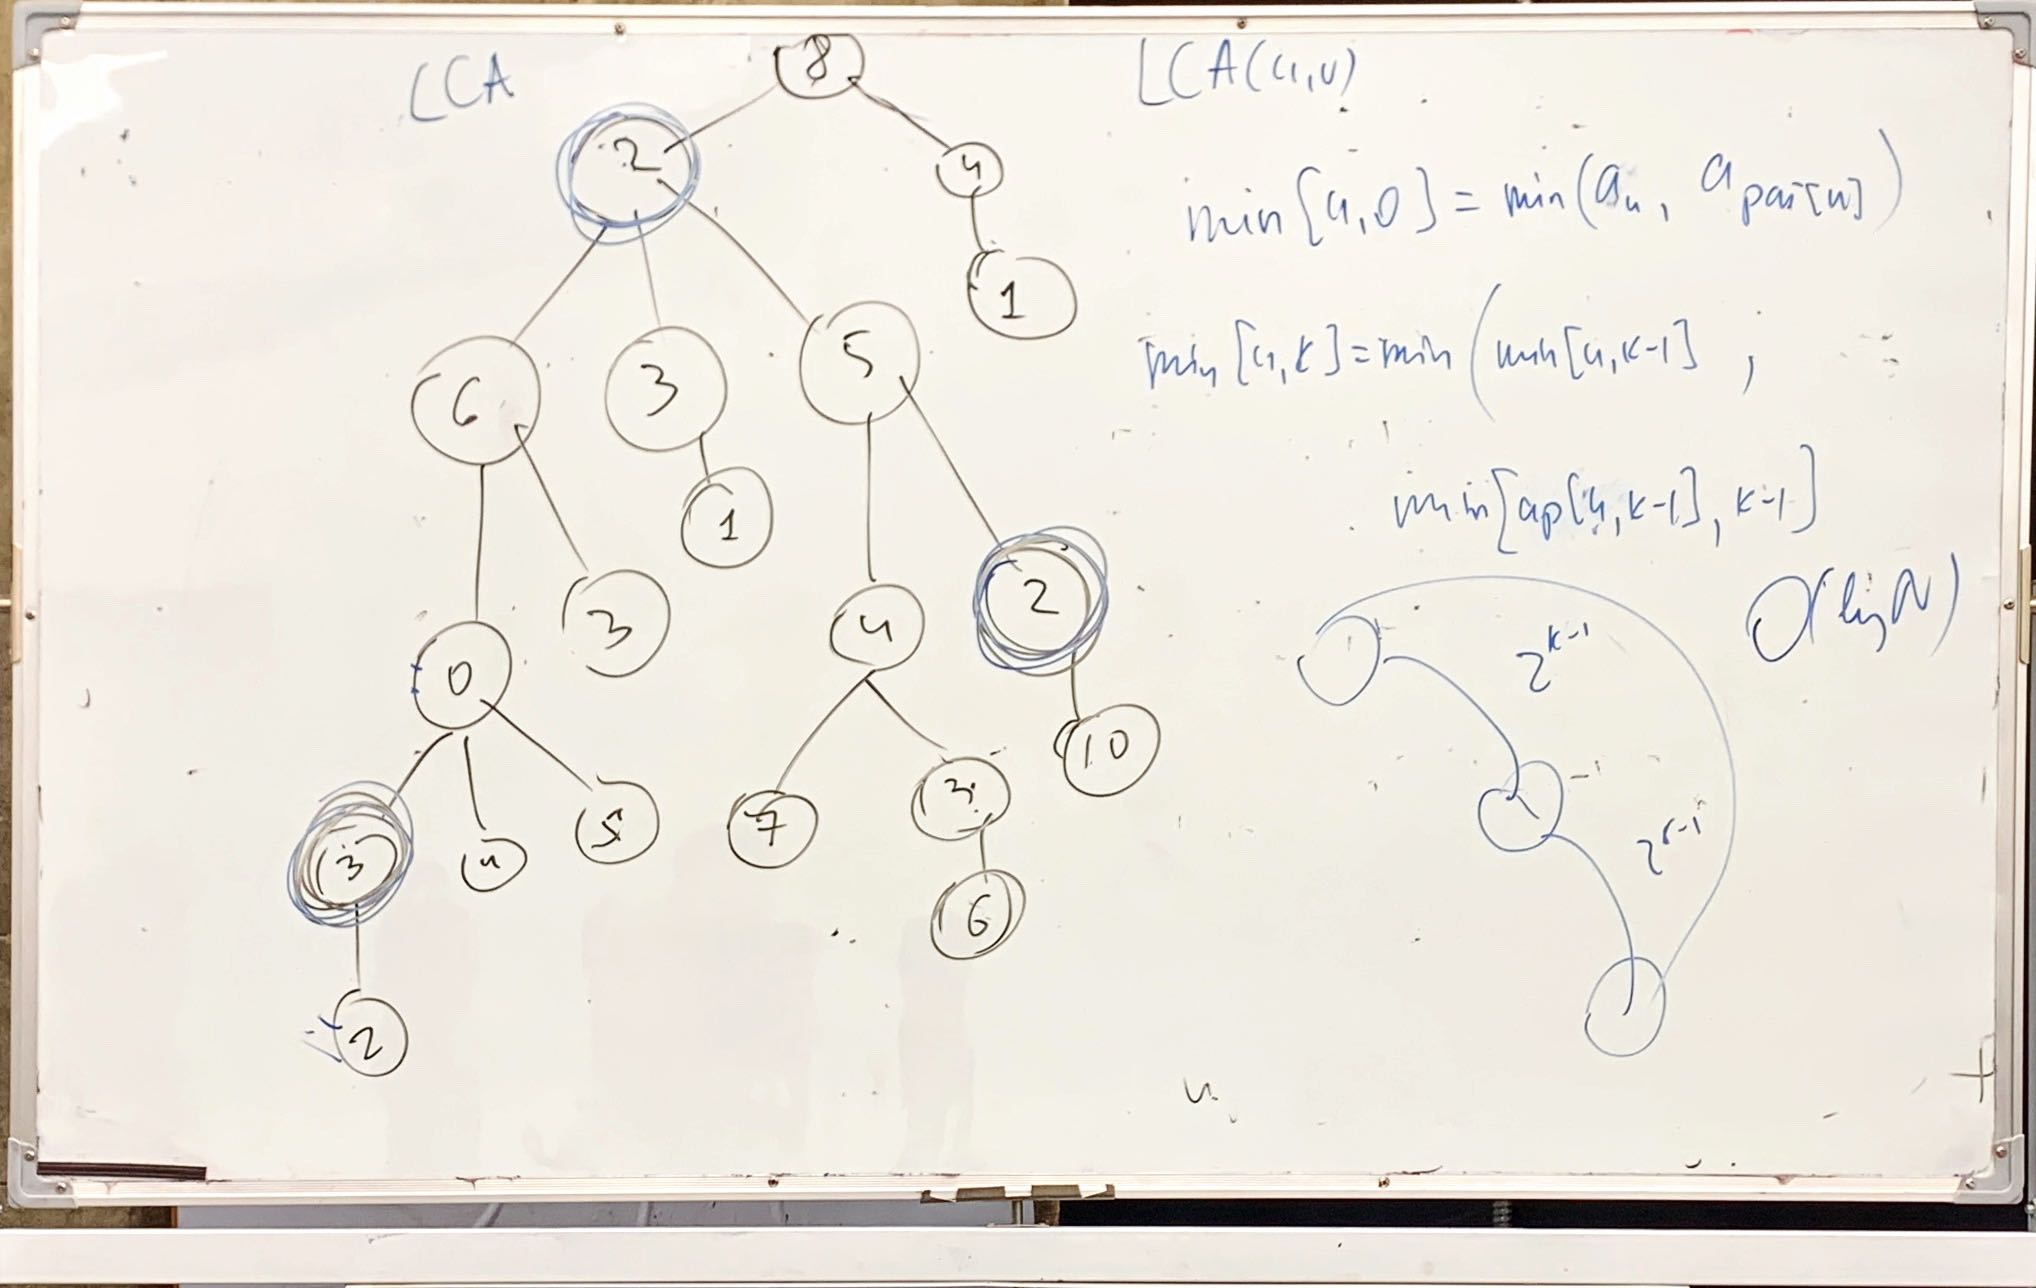 LCA
8
2
4
1
6
3
5
1
0
3
4
2
3
4
5
7
3
10
6
2
LCA(u,v)
min[u,0] = min(a_u, a_par[u])
min[u,k] = min(min[u,k-1],
min[ap[u,k-1], k-1]
O(log N)
2^{k-1}
2^{k-1}